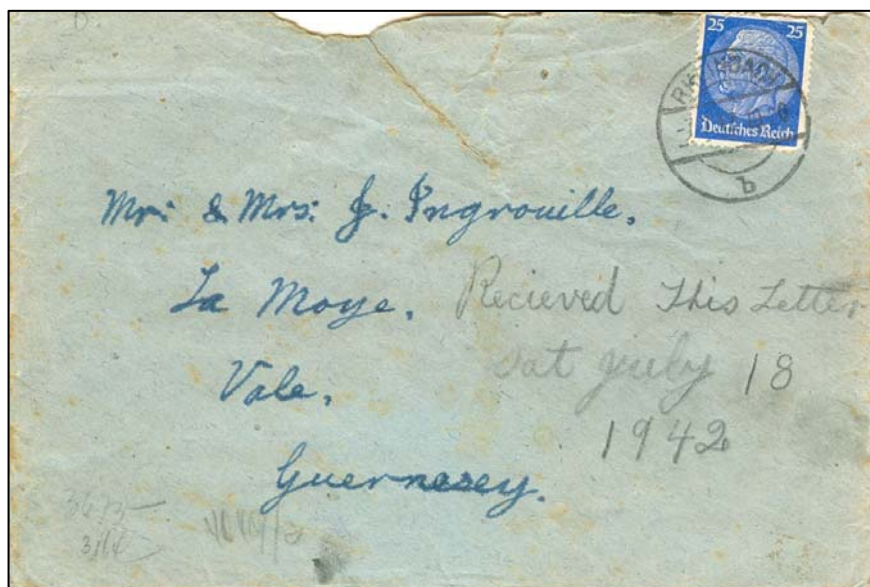 25 25
Deutsches Reich
b
Mr: & Mrs: J. Ingrouille.
La Moye.
Vale.
Guernesey.
Recieved This Letter
Sat July 18
1942